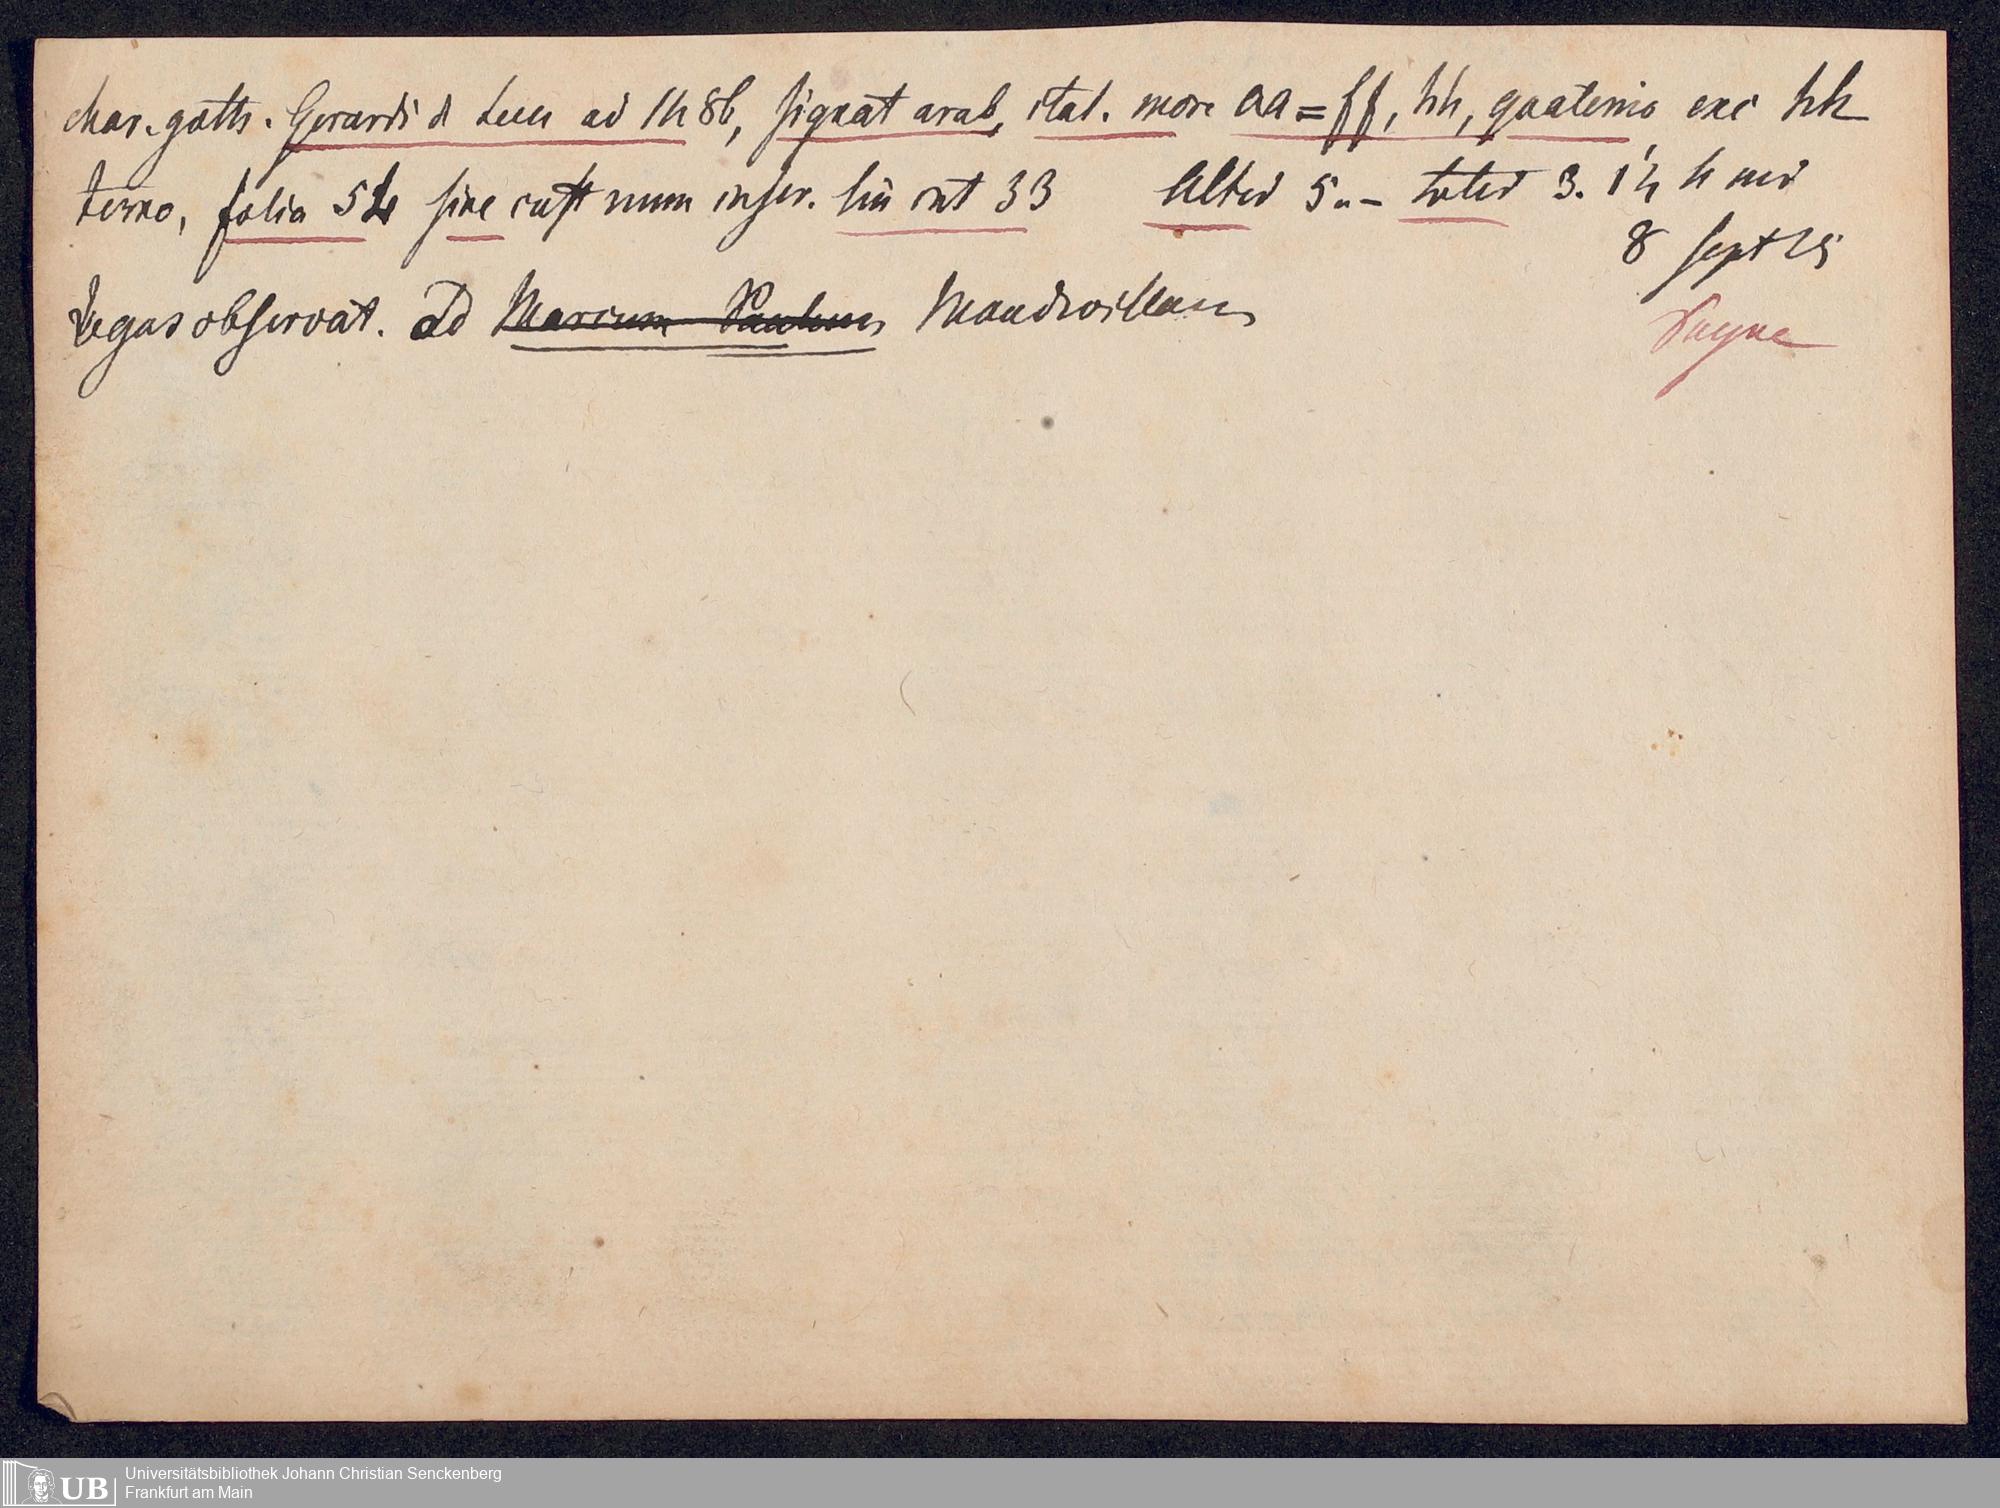 char. goth. Gerardi d Leeu ad 1486, signat arab, ital. more aa=ff, hh, quaternio, exc hh
terno, folia 54 sine cust num inser. lin int 33 Altid 5.- 3. 1½ h
8 Sept 25
Legas observat. ad Marcum Paulum Mandwillam
Universitätsbibliothek Johann Christian Senckenberg
UB Frankfurt am Main